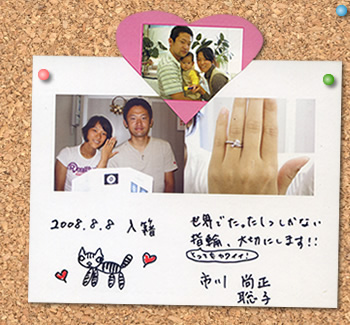 2008.8.8 入籍
世界でたった1つしかない
指輪、大切にします!!
とってもカワイイ!
市川 尚正
聡子